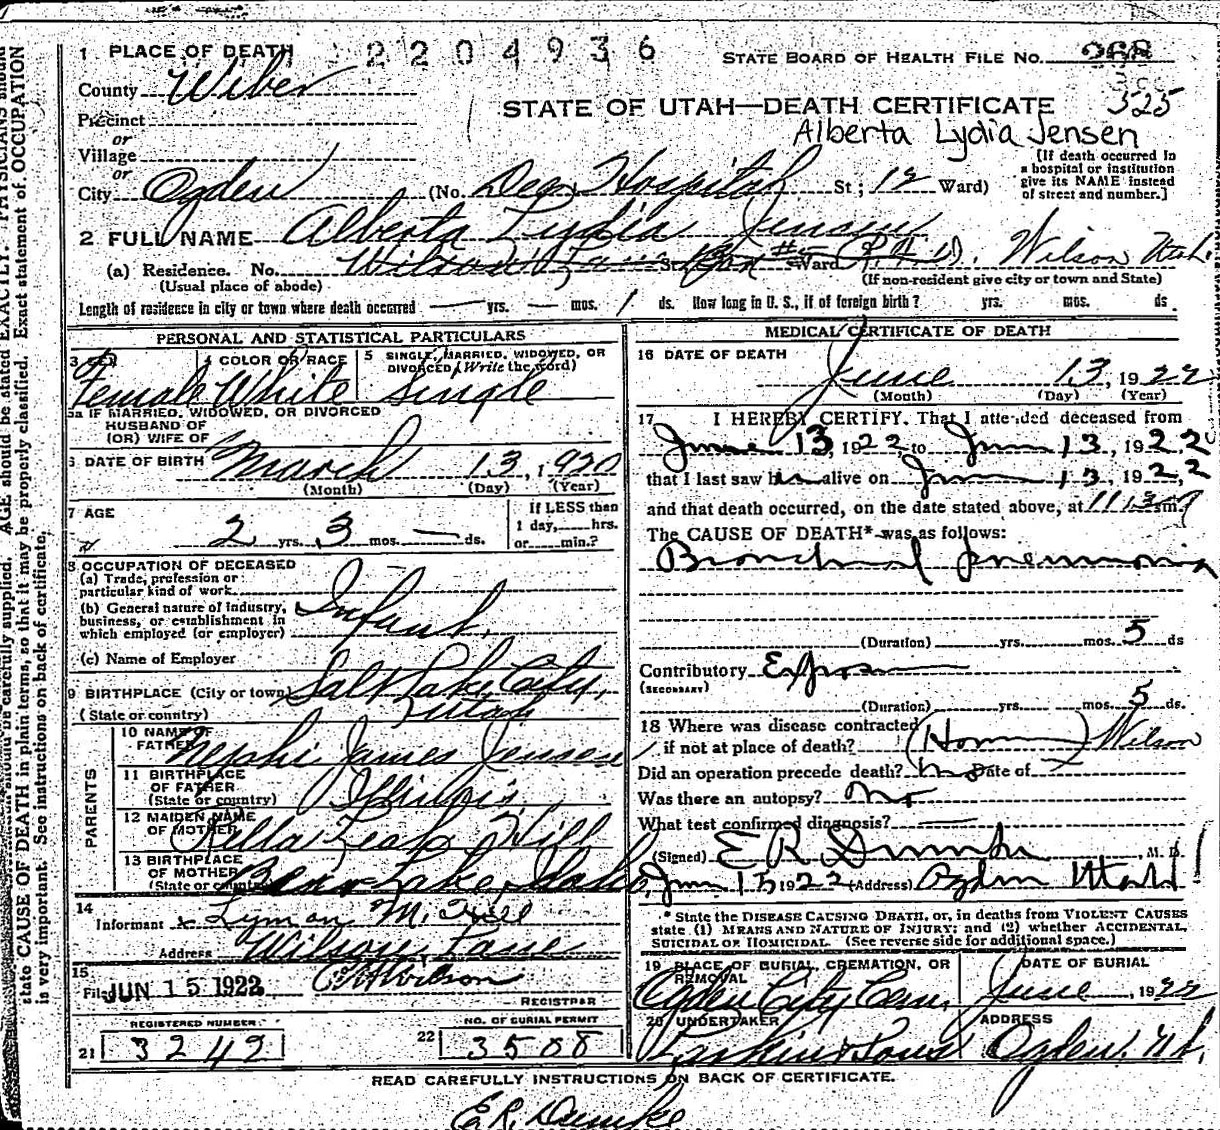 1 PLACE OF DEATH 2204936 STATE BOARD OF HEALTH FILE No. 268
County Weber
325
STATE OF UTAH—DEATH CERTIFICATE
Precinct
Alberta Lydia Jensen
or
Village
or
City Ogden (No. Dee Hospital St; 12 Ward)
[If death occurred in
a hospital or institution
give its NAME instead
of street and number.]
2 FULL NAME Alberta Lydia Jensen
(a) Residence. No. Wilson Lane St. Box #5 Ward R.F.D. Wilson Utah.
(Usual place of abode) (If non-resident give city or town and State)
Length of residence in city or town where death occurred — yrs. — mos. 1 ds. How long in U. S., if of foreign birth? yrs. mos. ds
PERSONAL AND STATISTICAL PARTICULARS
3 SEX 4 COLOR OR RACE 5 SINGLE, MARRIED, WIDOWED, OR
DIVORCED (Write the word)
Female White Single
5a IF MARRIED, WIDOWED, OR DIVORCED
HUSBAND OF
(OR) WIFE OF
6 DATE OF BIRTH March 13, 1920
(Month) (Day) (Year)
7 AGE 2 yrs. 3 mos. — ds.
If LESS than
1 day, hrs.
or min.?
8 OCCUPATION OF DECEASED
(a) Trade, profession or
particular kind of work
(b) General nature of industry,
business, or establishment in
which employed (or employer)
Infant.
(c) Name of Employer
9 BIRTHPLACE (City or town) Salt Lake City,
(State or country) Utah
PARENTS
10 NAME OF
FATHER Nephi James Jensen
11 BIRTHPLACE
OF FATHER
(State or country) Illinois
12 MAIDEN NAME
OF MOTHER Rella Leah Hill
13 BIRTHPLACE
OF MOTHER
(State or country) Bear Lake, Idaho
14
Informant x Lyman M. Hill
Address Wilson Lane
15
Filed JUN 15 1922
REGISTRAR
REGISTERED NUMBER
21 3242
NO. OF BURIAL PERMIT
22 3508
MEDICAL CERTIFICATE OF DEATH
16 DATE OF DEATH
June 13, 1922
(Month) (Day) (Year)
17 I HEREBY CERTIFY, That I attended deceased from
June 13, 1922, to June 13, 1922,
that I last saw h alive on June 13, 1922
and that death occurred, on the date stated above, at m.
The CAUSE OF DEATH* was as follows:
Bronchial pneumonia
(Duration) yrs. mos. 5 ds
Contributory Exposure
(SECONDARY)
(Duration) yrs. mos. 5 ds.
18 Where was disease contracted
if not at place of death? (Home) Wilson
Did an operation precede death? no Date of
Was there an autopsy? no
What test confirmed diagnosis? —
(Signed) E R Dumke, M. D.
June 15 1922 (Address) Ogden Utah
* State the DISEASE CAUSING DEATH, or, in deaths from VIOLENT CAUSES
state (1) MEANS AND NATURE OF INJURY; and (2) whether ACCIDENTAL,
SUICIDAL OR HOMICIDAL. (See reverse side for additional space.)
19 PLACE OF BURIAL, CREMATION, OR
REMOVAL
DATE OF BURIAL
Ogden City Cem. June, 1922
20 UNDERTAKER ADDRESS
Larkin & Sons Ogden. Ut.
READ CAREFULLY INSTRUCTIONS ON BACK OF CERTIFICATE.
E.R. Dumke
AGE should be stated EXACTLY. PHYSICIANS should
state CAUSE OF DEATH in plain terms, so that it may be properly classified. Exact statement of OCCUPATION
is very important. See instructions on back of certificate.